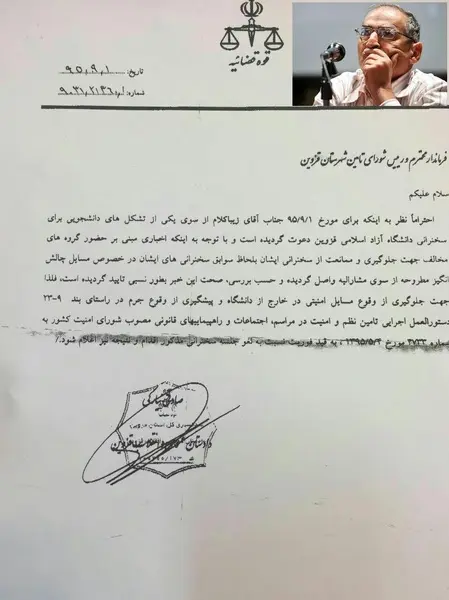 قوه قضائیه
تاریخ: ۹۵٫۹٫۱
شماره:
فرماندار محترم و رییس شورای تامین شهرستان قزوین
سلام علیکم
احتراماً نظر به اینکه برای مورخ ۹۵/۹/۱ جناب آقای زیباکلام از سوی یکی از تشکل های دانشجویی برای
سخنرانی دانشگاه آزاد اسلامی قزوین دعوت گردیده است و با توجه به اینکه اخباری مبنی بر حضور گروه های
مخالف جهت جلوگیری و ممانعت از سخنرانی ایشان بلحاظ سوابق سخنرانی های ایشان در خصوص مسایل چالش
انگیز مطروحه از سوی مشارالیه واصل گردیده و حسب بررسی، صحت این خبر بطور نسبی تایید گردیده است، فلذا
جهت جلوگیری از وقوع مسایل امنیتی در خارج از دانشگاه و پیشگیری از وقوع جرم در راستای بند ۹-۲۳
دستورالعمل اجرایی تامین نظم و امنیت در مراسم، اجتماعات و راهپیماییهای قانونی مصوب شورای امنیت کشور به
شماره ۳۷۳۳ مورخ ۱۳۹۵/۵/۲ ، به قید فوریت نسبت به لغو جلسه سخنرانی مذکور اقدام و نتیجه نیز اعلام شود./
دادستان عمومی و انقلاب قزوین